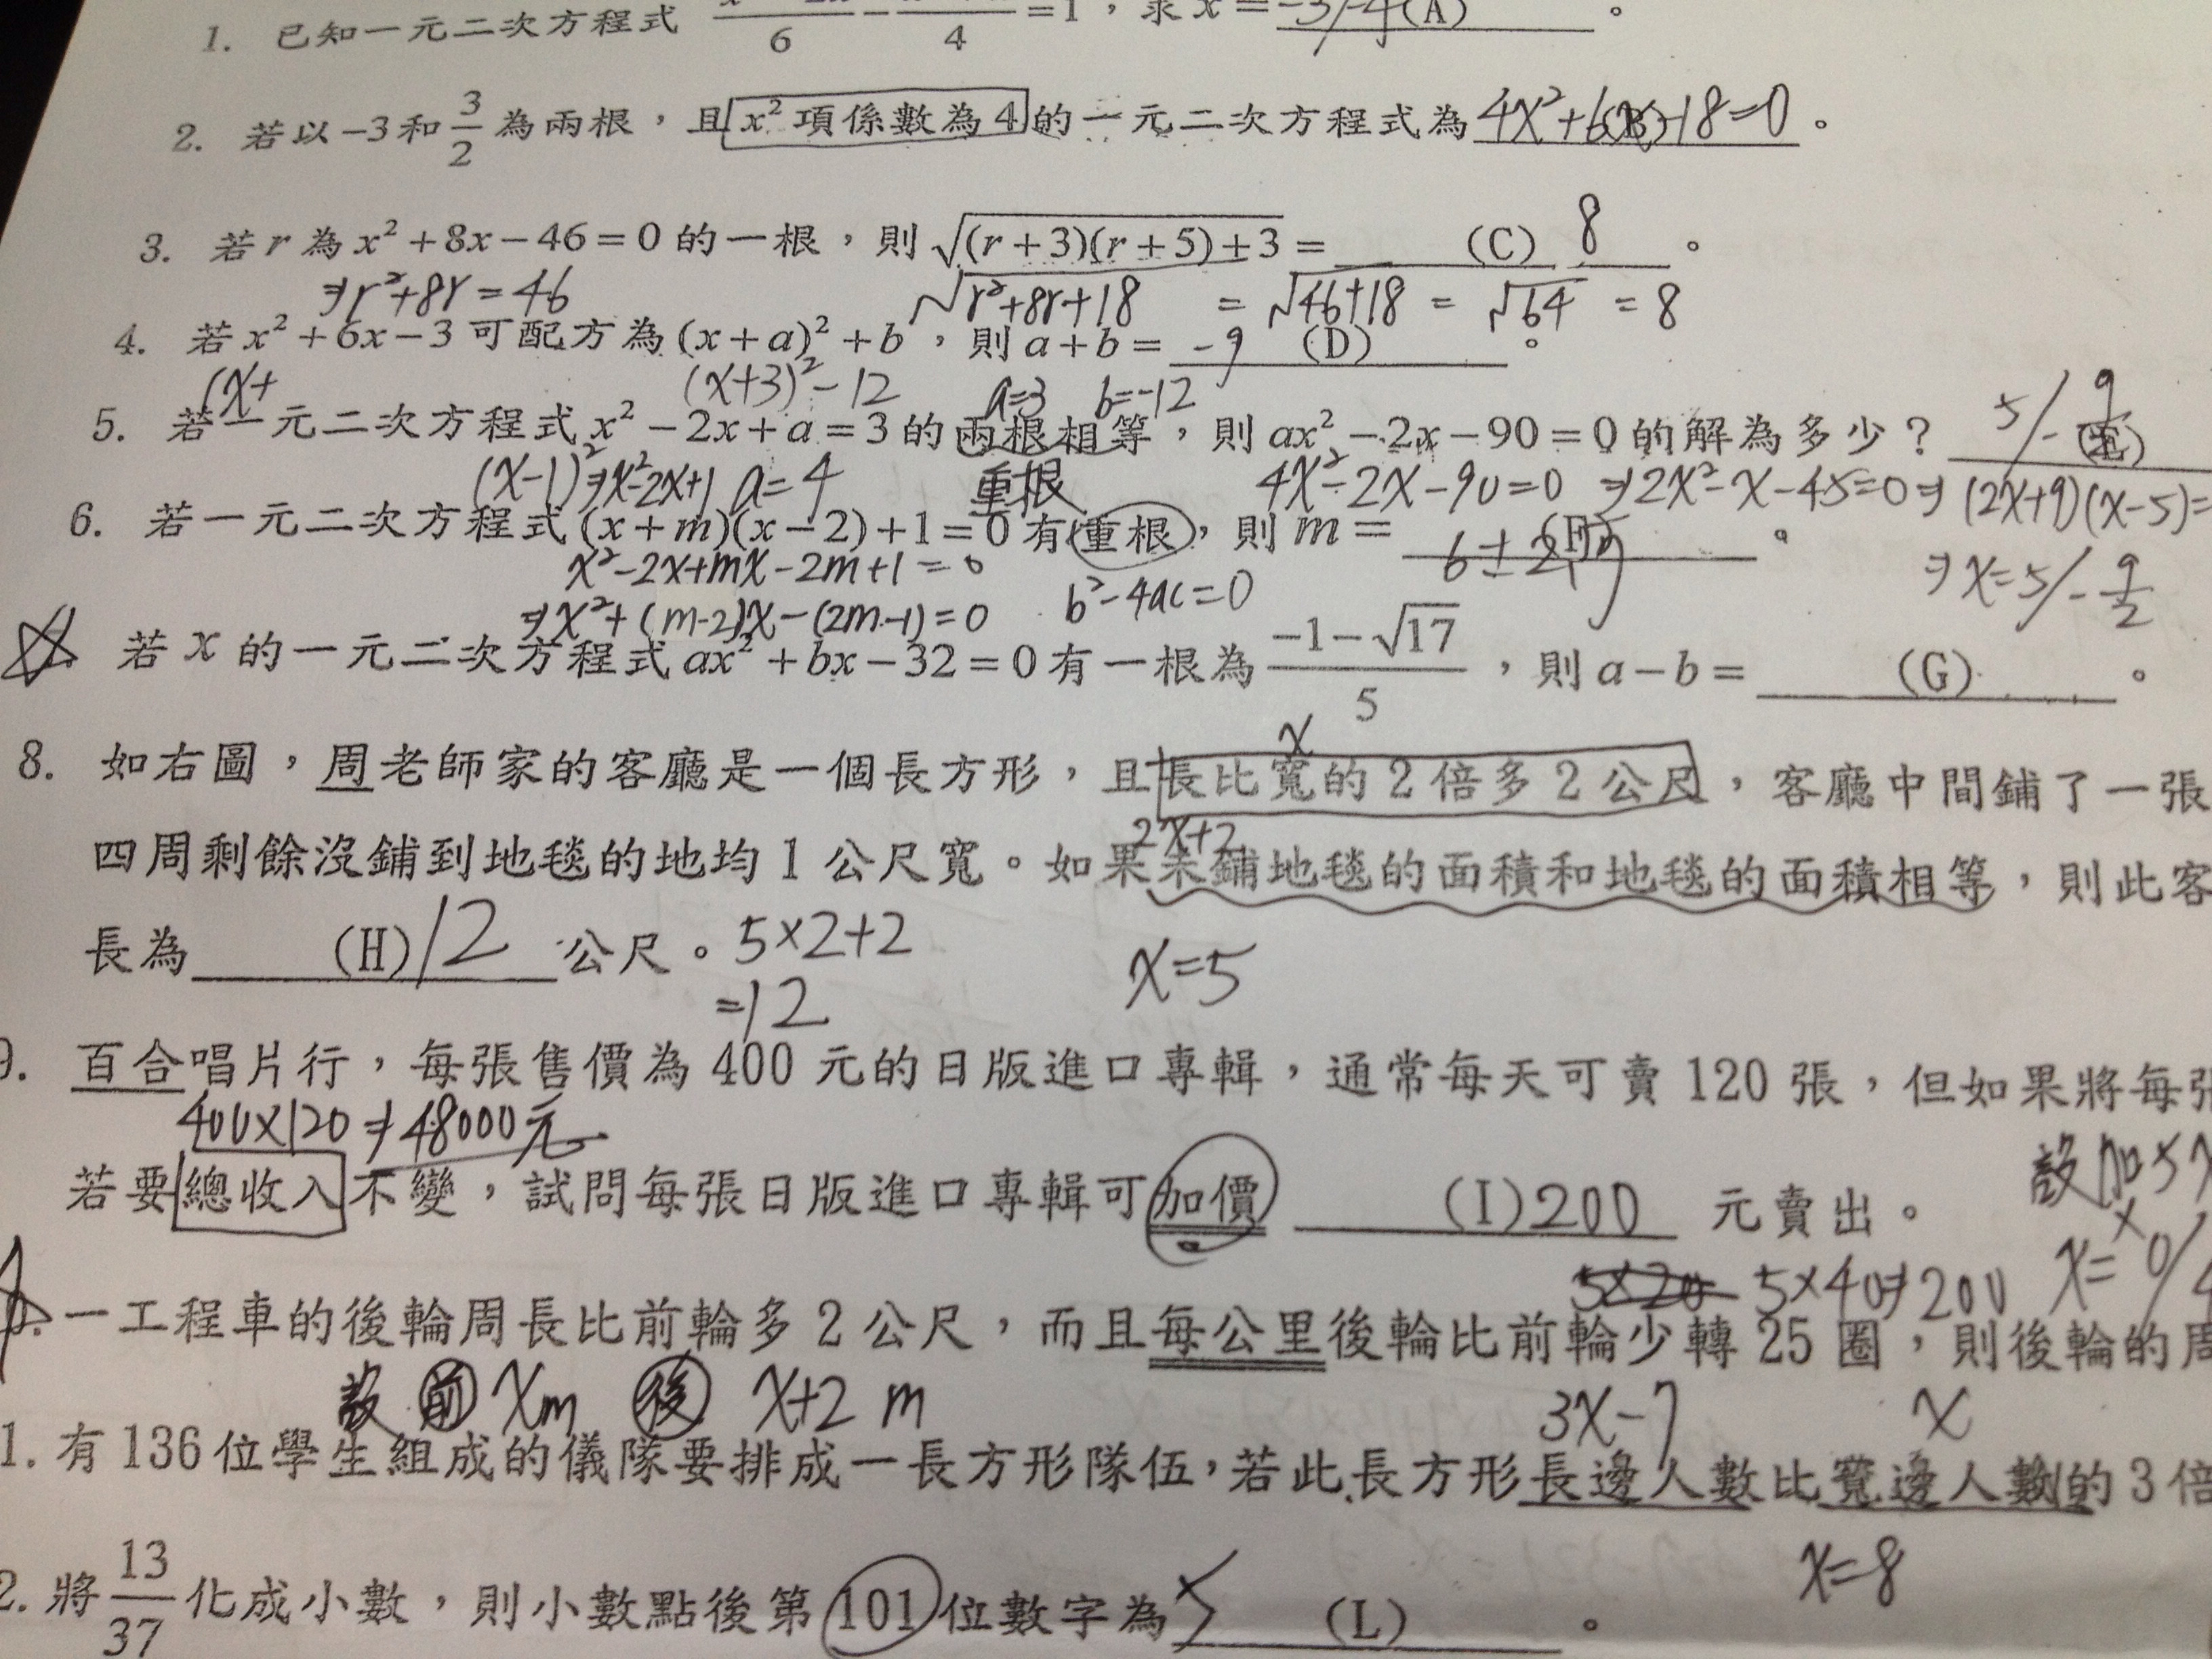 1. 已知一元二次方程式 6 - 4 =1，求 x = -3/-4 (A) 。
2. 若以 -3 和 3/2 為兩根，且 x² 項係數為 4 的一元二次方程式為 4x²+6x-18=0 (B) 。
3. 若 r 為 x²+8x-46=0 的一根，則 √((r+3)(r+5)+3) = (C) 8 。
⇒r²+8r=46 √(r²+8r+18) = √(46+18) = √64 = 8
4. 若 x²+6x-3 可配方為 (x+a)²+b，則 a+b= -9 (D) 。
(x+ (x+3)²-12 a=3 b=-12
5. 若一元二次方程式 x²-2x+a=3 的兩根相等，則 ax²-2x-90=0 的解為多少？ 5/-9
(x-1)²⇒x²-2x+1 a=4 重根 4x²-2x-90=0 ⇒2x²-x-45=0⇒(2x+9)(x-5)=
6. 若一元二次方程式 (x+m)(x-2)+1=0 有重根，則 m= 6± (F) 。
x²-2x+mx-2m+1=0 ⇒x=5/-9/2
⇒x²+(m-2)x-(2m-1)=0 b²-4ac=0
若 x 的一元二次方程式 ax²+bx-32=0 有一根為 (-1-√17)/5，則 a-b= (G) 。
8. 如右圖，周老師家的客廳是一個長方形，且長比寬的 2 倍多 2 公尺，客廳中間鋪了一張
x
2x+2
四周剩餘沒鋪到地毯的地均 1 公尺寬。如果未鋪地毯的面積和地毯的面積相等，則此客
長為 (H) 12 公尺。 5×2+2
=12 x=5
9. 百合唱片行，每張售價為 400 元的日版進口專輯，通常每天可賣 120 張，但如果將每張
400×120⇒48000元
若要總收入不變，試問每張日版進口專輯可加價 (I) 200 元賣出。 設加5x
5×20 5×40⇒200 x=0/4
一工程車的後輪周長比前輪多 2 公尺，而且每公里後輪比前輪少轉 25 圈，則後輪的周
設 前 xm 後 x+2 m 3x-7 x
1. 有 136 位學生組成的儀隊要排成一長方形隊伍，若此長方形長邊人數比寬邊人數的 3 倍
x=8
2. 將 13/37 化成小數，則小數點後第 101 位數字為 5 (L) 。